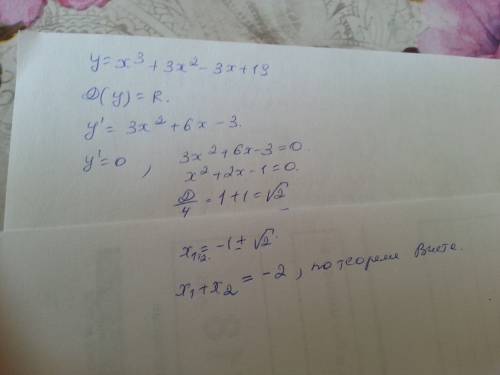 y = x³ + 3x² - 3x + 19
D(y) = R.
y' = 3x² + 6x - 3.
y' = 0 , 3x² + 6x - 3 = 0.
x² + 2x - 1 = 0.
D/4 = 1 + 1 = √2
x₁,₂ = -1 ± √2.
x₁ + x₂ = -2, по теореме Виета.